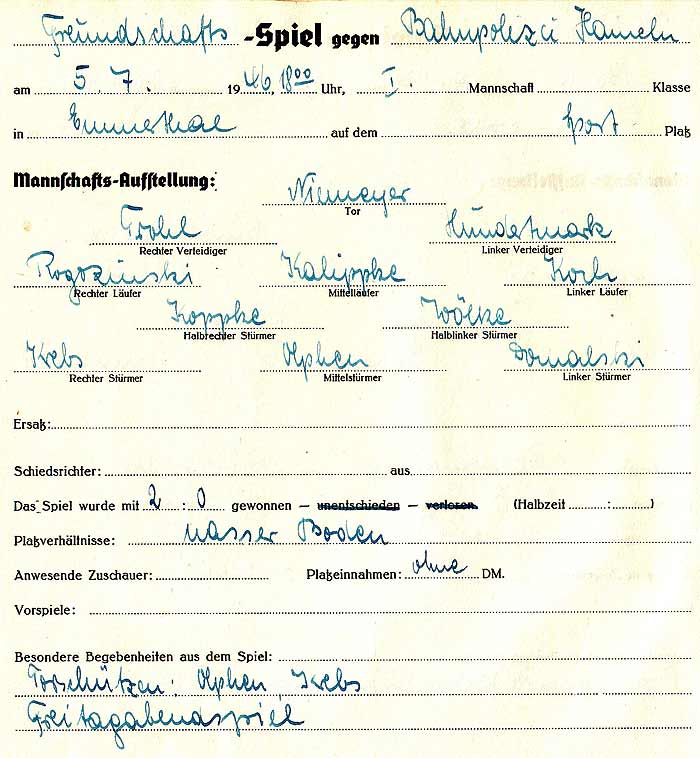 Freundschafts -Spiel gegen Bahnpolizei Hameln
am 5. 7. 1946, 18⁰⁰ Uhr, I. Mannschaft Klasse
in Emmerthal auf dem Sport Platz
Mannschafts-Aufstellung:
Niemeyer
Tor
Trohl Hundertmark
Rechter Verteidiger Linker Verteidiger
Rogozinski Kalippke Koch
Rechter Läufer Mittelläufer Linker Läufer
Koppke Wölke
Halbrechter Stürmer Halblinker Stürmer
Krebs Olphen Domalski
Rechter Stürmer Mittelstürmer Linker Stürmer
Ersatz:
Schiedsrichter: aus
Das Spiel wurde mit 2 : 0 gewonnen — unentschieden — verloren. (Halbzeit : )
Platzverhältnisse: nasser Boden
Anwesende Zuschauer: Platzeinnahmen: ohne DM.
Vorspiele:
Besondere Begebenheiten aus dem Spiel:
Torschützen: Olphen, Krebs
Freitagabendspiel